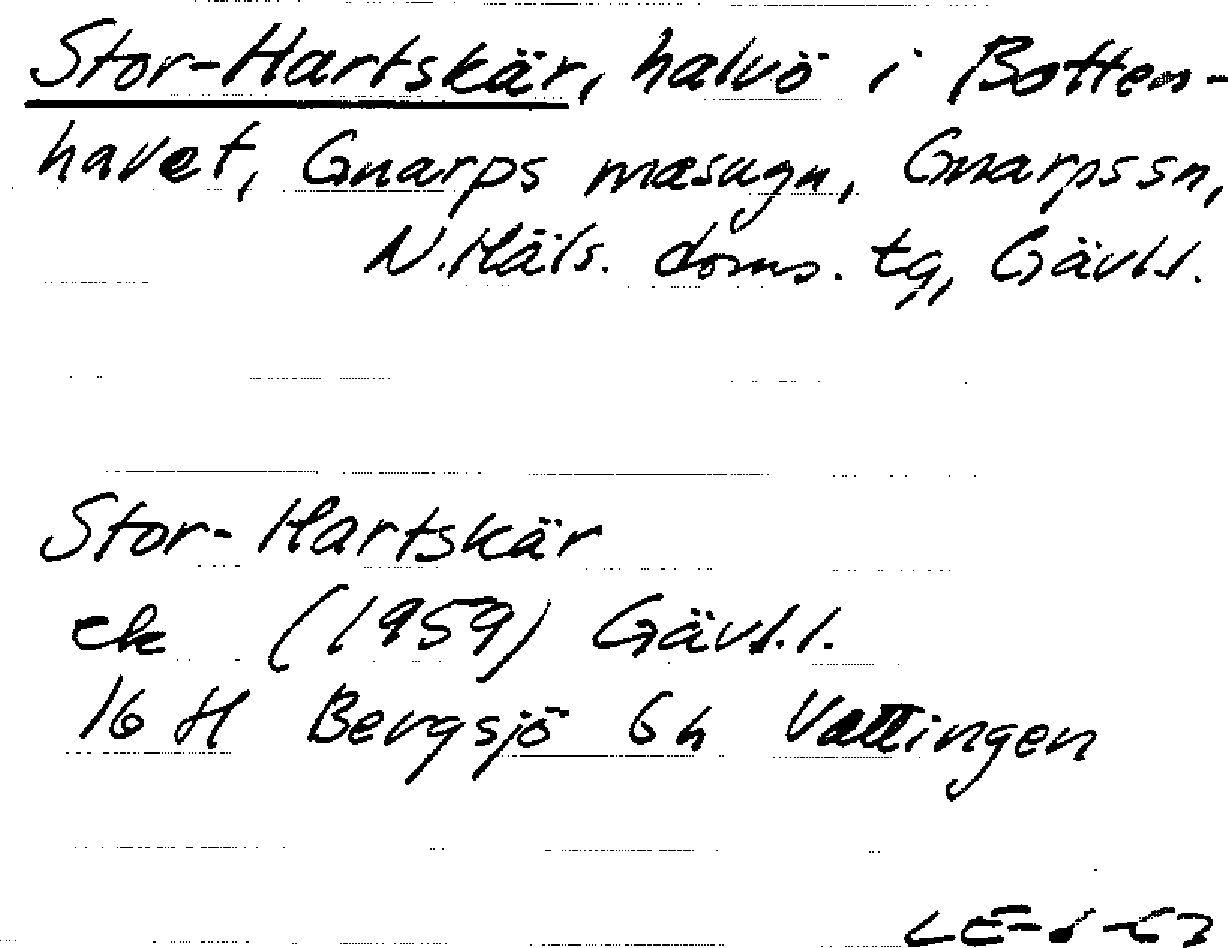 Stor-Hartskär, halvö i Botten-
havet, Gnarps masugn, Gnarps sn,
N. Häls. doms. tg, Gävl.l.
Stor-Hartskär
ek (1959) Gävl.l.
16 H Bergsjö 6 h Vattingen